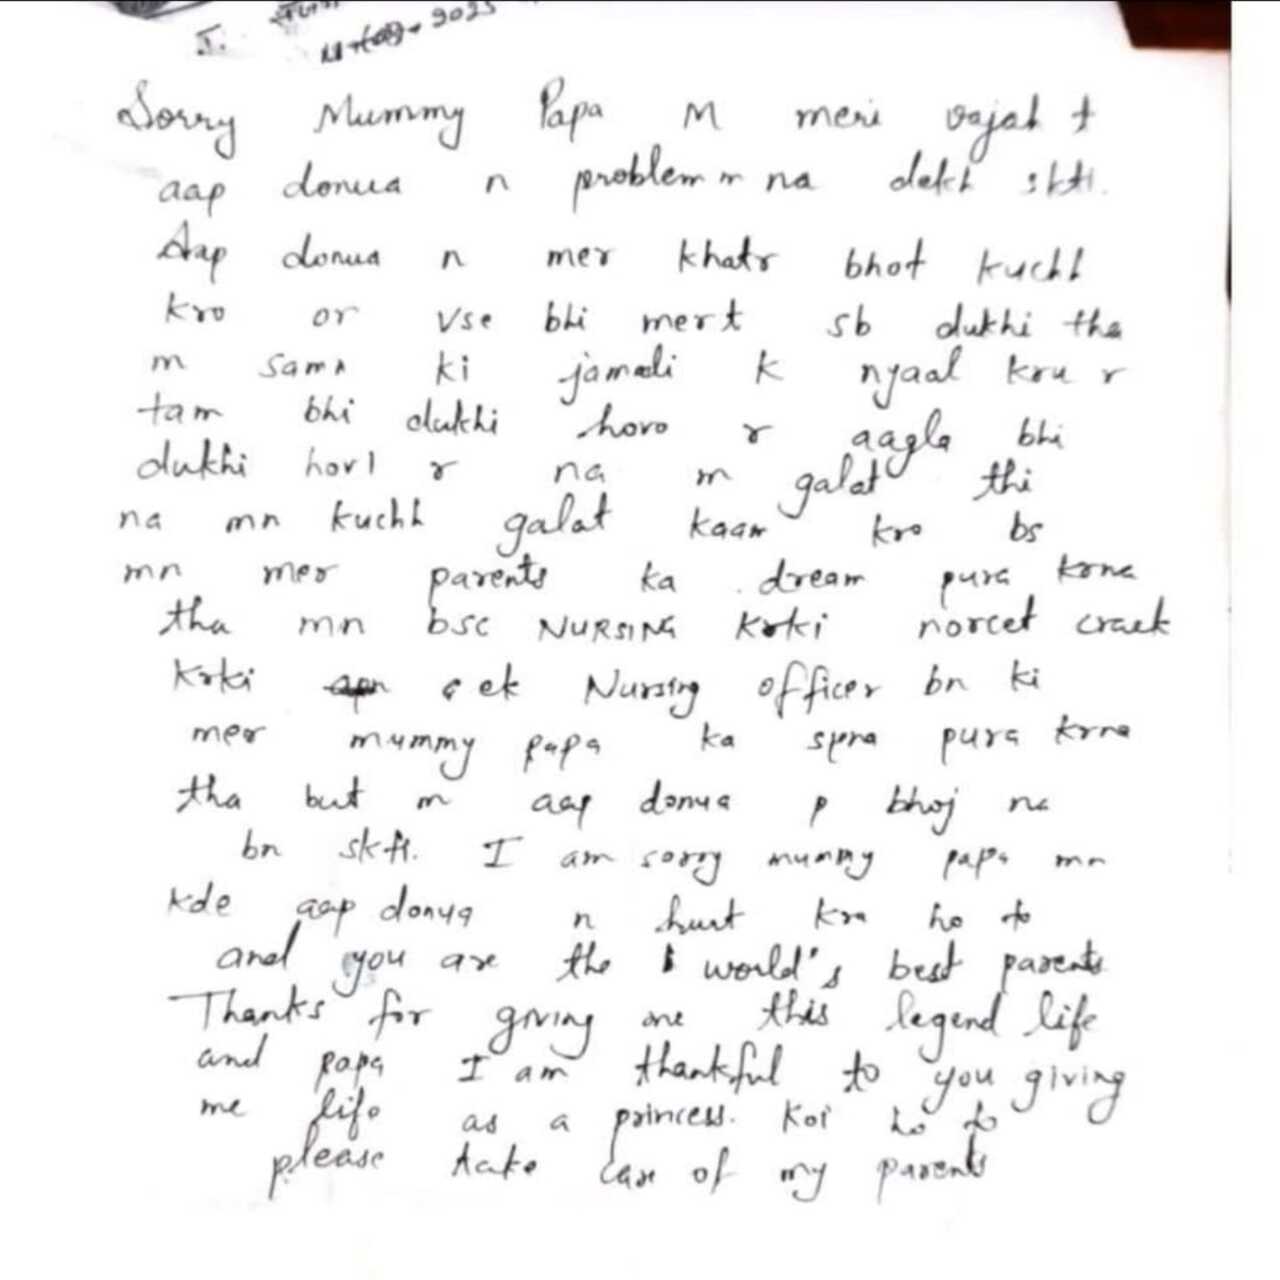 I.
Sorry Mummy Papa M meri vajah t
aap donua n problem m na dekh skti.
Aap donua n mer khatr bhot kuchh
kro or vse bhi mert sb dukhi tha
m samn ki jamali k nyaal kru r
tam bhi dukhi horo r aagla bhi
dukhi horl r na m galat thi
na mn kuchh galat kaam kro bs
mn mer parents ka dream pura krna
tha mn bsc NURSING krki norcet crack
krki ek Nursing officer bn ki
mer mummy papa ka spna pura krna
tha but m aap donua p bhoj na
bn skti. I am sorry mummy papa mn
kde aap donua n hurt kra ho to
and you are the world's best parents
Thanks for giving me this legend life
and papa I am thankful to you giving
me life as a princess. Koi ho to
please take care of my parents